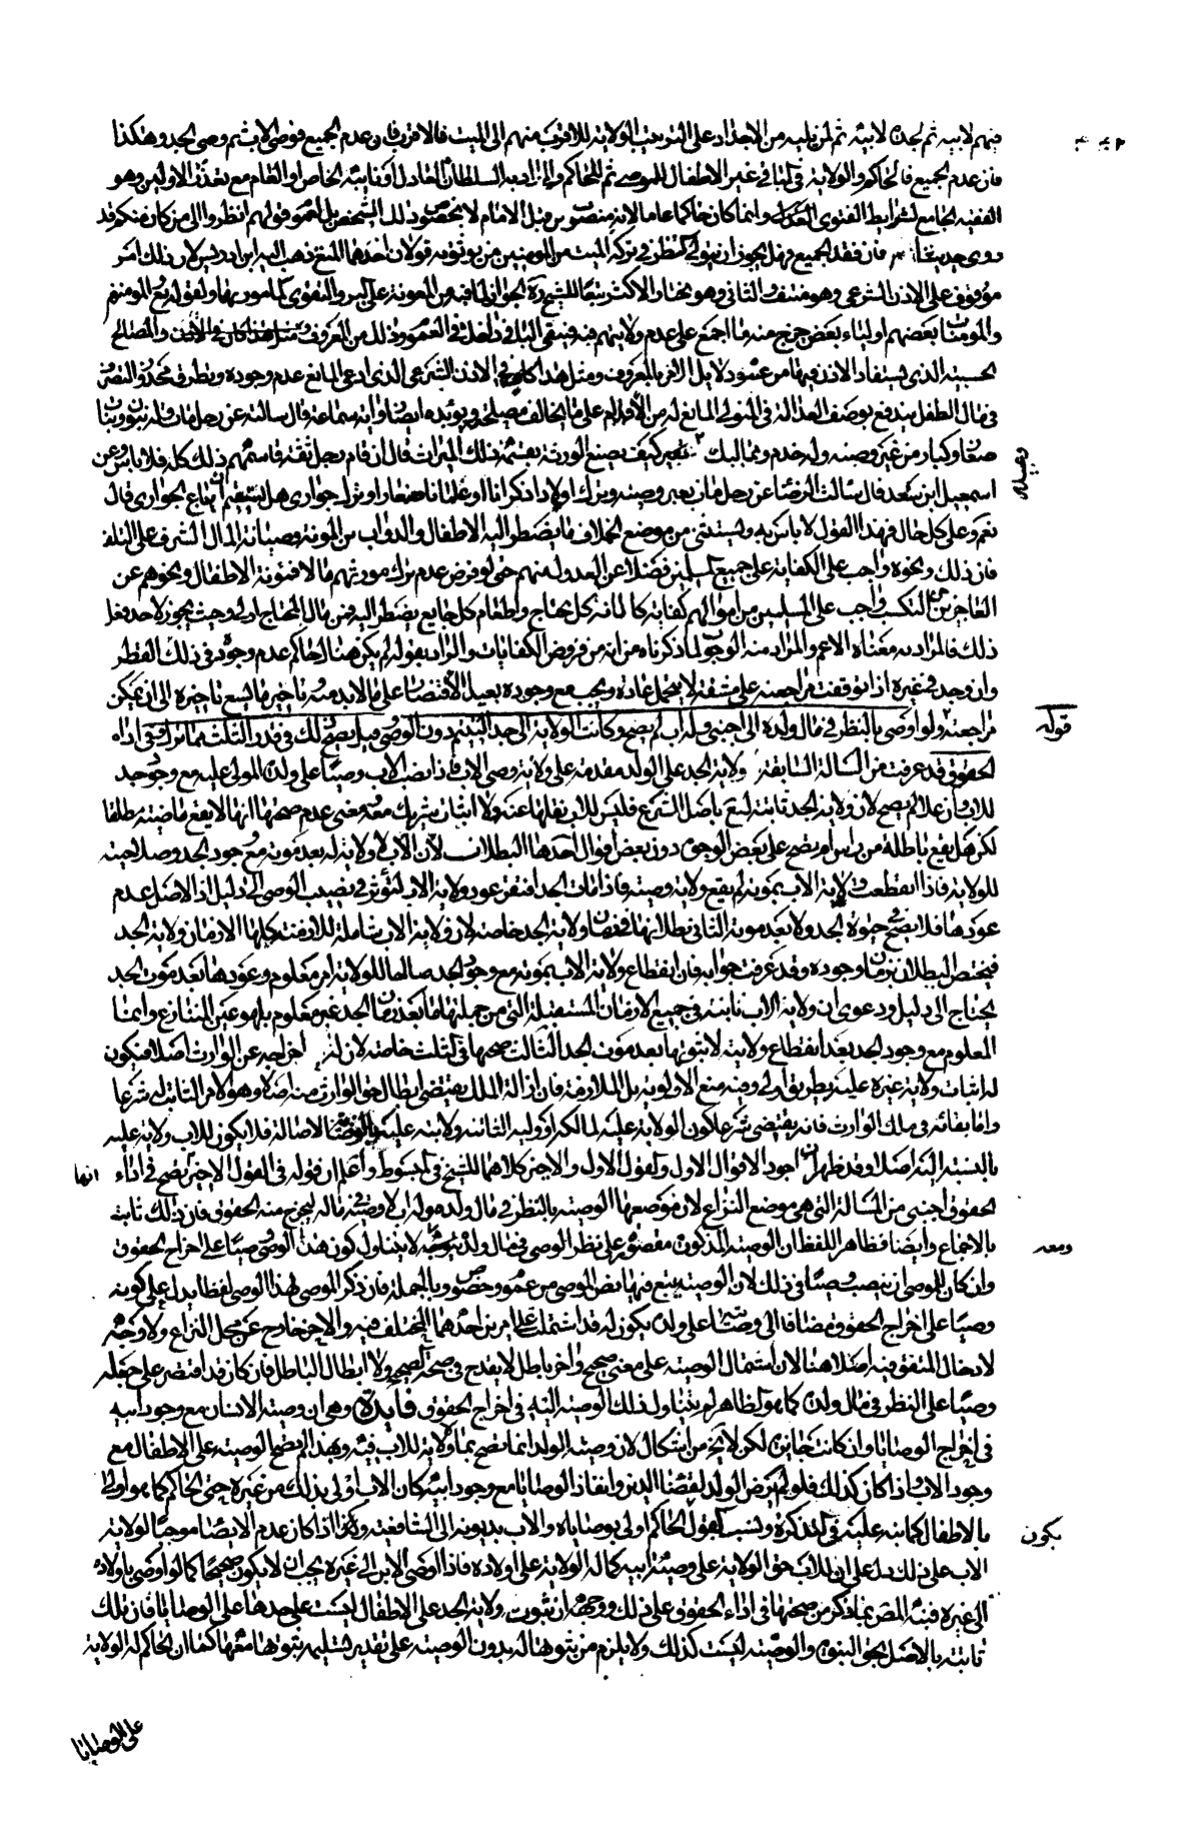 فيهم لابيه ثم لجده لابيه ثم لمن يليه من الاجداد على الترتيب الولاية للاقرب منهم الى الميت فالاقرب فان عدم الجميع فوصى الاب ثم وصى الجد وهكذا
فان عدم الجميع فالحاكم والولاية في الباقي غير الاطفال للوصي ثم للحاكم والمراد به السلطان العادل او نائبه الخاص او العام مع تعذر الاولين وهو
الفقيه الجامع لشرايط الفتوى العدل وانما كان حاكما عاما لانه منصوب من قبل الامام لا بخصوص ذلك الشخص بل بعموم قولهم انظروا الى من كان منكم قد
روى حديثنا فان فقد الجميع فهل يجوز ان يتولى النظر في تركة الميت من المومنين من يوثق به قولان احدهما المنع ذهب اليه ابن ادريس لان ذلك امر
موقوف على الاذن الشرعي وهو منتف والثاني وهو مختار الاكثر تبعا للشيخ الجواز لما فيه من المعونة على البر والتقوى المامور بها ولقوله تع المومنون
والمومنات بعضهم اولياء بعض خرج منه ما اجمع على عدم ولايتهم فيه فيبقى الباقي داخلا في العموم وذلك من المعروف والمصالح
الحسبية الذي يستفاد الاذن فيها من دلايل الامر بالمعروف ومثل هذا كاف في الاذن الشرعي الذي ادعى المانع عدم وجوده وتطرق محذور التصرف
في مال الطفل يندفع بوصف العدالة في المتولي المانع له من الاقدام على ما يخالف مصلحة ويؤيده ايضا رواية سماعة قال سالته عن رجل مات وله بنون وبنات
صغار وكبار من غير وصية وله خدم ومماليك كيف يصنع الورثة بقسمة ذلك الميراث قال ان قام رجل ثقة قاسمهم ذلك كله فلا باس وعن
اسمعيل ابن سعد قال سالت الرضا عن رجل مات بغير وصية وترك اولادا ذكرانا او غلمانا صغارا وترك جواري هل يستقيم ان تباع الجواري قال
نعم وعلى كل حال فهذا القول لا باس به ويستثنى من موضع الخلاف ما يضطر اليه الاطفال والدواب من المونة وصيانة المال المشرف على التلف
فان ذلك ونحوه واجب على الكفاية على جميع المسلمين فضلا عن العدول منهم حتى لو فرض عدم ترك مورثهم مالا فمونة الاطفال ونحوهم عن
العاجزين عن التكسب واجب على المسلمين من اموالهم كفاية كاعانة كل محتاج واطعام كل جايع يضطر اليه فمن مال المحتاج اولى وحيث يجوز لاحد فعل
ذلك فالمراد به معناه الاعم والمراد منه الوجوب لما ذكرناه من انه من فروض الكفايات والمراد بقوله لم يكن هناك حاكم عدم وجوده في ذلك القطر
وان وجد في غيره اذا توقفت مراجعته على مشقة لا يتحمل عادة ويجب مع وجوده بعيدا الاقتصار على ما لا بد منه تاخير ما يسع تاخيره الى ان يمكن
مراجعته ولو اوصى بالنظر في مال ولده الى اجنبي وله اب لم يصح وكانت الولاية الى جد اليتيم دون الوصي وقيل يصح ذلك في قدر الثلث مما ترك وفي اداء
الحقوق قد عرفت من المسالة السابقة ولاية الجد على الولد مقدمة على ولاية وصي الاب فاذا نصب الاب وصيا على ولده المولى عليه مع وجود جد
للاب وان علا لم يصح لان ولاية الجد ثابتة له باصل الشرع فليس للاب نقلها عنه ولا اثبات شريك معه ومعنى عدم صحتها انها لا يقع ماضية مطلقا
لكن هل يقع باطلة من راس او يصح على بعض الوجوه دون بعض اقوال احدها البطلان لان الاب لا ولاية له بعد موته مع وجود الجد وصلاحيته
للولاية فاذا انقطعت ولاية الاب بموته لم يقع ولاية وصيه فاذا مات الجد افتقر عود ولاية الاب لتؤثر في نصيب الوصي الى دليل اذ الاصل عدم
عودها فلا يصح في حيوة الجد ولا بعد موته الثاني بطلانها في زمان ولاية الجد خاصة لان ولاية الاب شاملة للازمنة كلها الا زمان ولاية الجد
فيختص البطلان بزمان وجوده وقد عرفت جوابه فان انقطاع ولاية الاب بموته مع وجود الجد صالحا للولاية امر معلوم وعودها بعد موت الجد
يحتاج الى دليل ودعوى ان ولاية الاب ثابتة في جميع الازمان المستقبلة التي من جملتها ما بعد زمان الجد غير معلوم بل هو عين المتنازع وانما
المعلوم مع وجود الجد بعد انقطاع ولايته لا ثبوتها بعد موت الجد الثالث صحتها في الثلث خاصة لان له اخراجه عن الوارث اصلا فيكون
له اثبات ولاية غيره عليه بطريق اولى وفيه منع الاولوية بل الملازمة فان ازالة الملك يقتضي ابطال حق الوارث منه اصلا وهو الامر الثابت له شرعا
واما بقائه في ملك الوارث فانه يقتضي شرعا كون الولاية عليه لمالكه او وليه الثابتة ولايته عليه بالاصالة فلا يكون للاب ولاية عليه
بالنسبة اليه اصلا وقد ظهر ان اجود الاقوال الاول والقول الاول والاخير كلاهما للشيخ في المبسوط واعلم ان قوله في القول الاخير يصح في اداء انها
الحقوق اجنبي من المسالة التي هي موضع النزاع لان موضعها الوصية بالنظر في مال ولده وله اب لا وصية في ماله ليخرج منه الحقوق فان ذلك ثابت
بالاجماع وايضا فظاهر اللفظ ان الوصية المذكورة مقصور على نظر الوصي في مال ولد لا يتناول كون هذا الوصي وصيا على اخراج الحقوق ومعه
وان كان للموصي ان ينصب وصيا في ذلك لان الوصية يتبع فيها نص الموصي من عموم وخصوص وبالجملة فان ذكر الموصي لهذا الوصي لفظا يدل على كونه
وصيا على اخراج الحقوق مضافا الى وصيته على ولده يكون له قد اشتملت على امرين احدهما المختلف فيه والاخر خارج عن محل النزاع ولا وجه
لادخال المتفق فيه اصلا هنا لان اشتمال الوصية على معنى صحيح واخر باطل لا يقدح في صحة الصحيح ولا ابطال الباطل فان كان قد اقتصر على جعله
وصيا على النظر في مال ولده كما هو الظاهر لم يتناول ذلك الوصية اليه في اخراج الحقوق فايدة وهي ان وصية الانسان مع وجود ابيه
في اخراج الوصايا وان كانت جايزة لكن لا يخ من اشكال لان وصية الولد انما تصح بما لا ولاية للاب فيه وبهذا لم يصح الوصية على الاطفال مع
وجود الاب واذا كان كذلك فلو لم يوص الولد لقضاء الدين وانفاذ الوصايا مع وجود ابيه كان الاب اولى بذلك من غيره حتى الحاكم كما هو اولى
بالاطفال كما نبه عليه في التذكرة ونسب القول الحاكم اولى بوصاياه والاب بديونه الى الشافعية وح اذا كان عدم الايصاء موجبا لولاية يكون
الاب على ذلك دل على ان للاب حق الولاية على وصية ابيه كما له الولاية على اولاده فاذا اوصى الابن الى غيره يجب ان لا يكون صحيحا كما لو اوصى باولاده
الى غيره فنبه المص بما ذكر من صحتها في اداء الحقوق على ذلك ووجهه ان ثبوت ولاية الجد على الاطفال ليست على حدها على الوصايا فان تلك
ثابتة بالاصل بحق البنوة والوصية ليست كذلك ولا يلزم من ثبوتها له بدون الوصية على تقدير تسليمه ثبوتها معها كما ان الحاكم له الولاية
قوله
على الوصايا